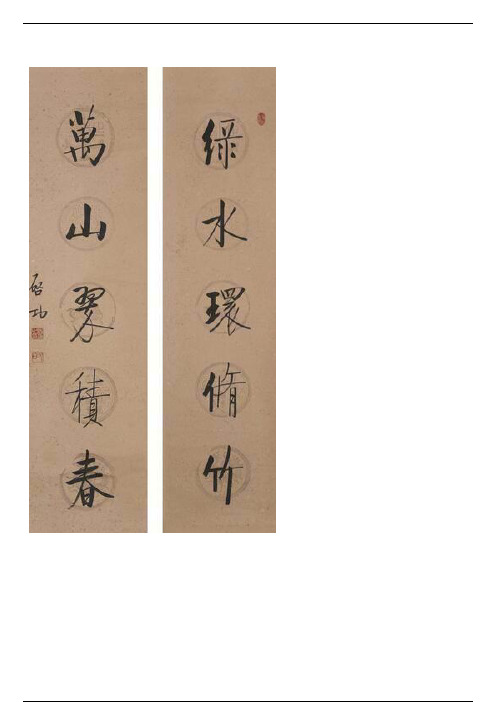 綠水環脩竹
萬山翠積春
啟功